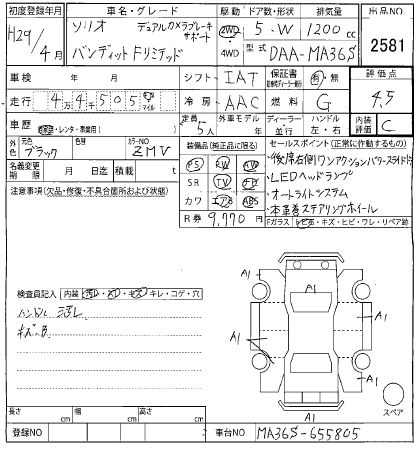 初度登録年月 車名・グレード ドア数・形状 排気量 出品NO
H29/4月 ソリオ デュアルカメラブレーキサポート 2WD 5・W 1200cc 2581
バンディットFリミテッド 4WD 型式 DAA-MA36S
車検 年 月 シフト IAT 保証書 有・無 評価点
走行 4万4千505 km マイル 冷房 AAC 燃料 G 4.5
車歴 自家用・レンタ・事業用( ) 定員 5人 外車モデル 年 ディーラー 並行 ハンドル 左・右 内装評価 C
外色 元色 ブラック 色替 カラーNO ZMV 装備品(純正品に限る) セールスポイント(正常に作動するもの)
名義変更期限 月 日迄 積載 t PS RW AW
・後席右側ワンアクションパワースライドドア
・LEDヘッドランプ
注意事項(欠品・修復・不具合箇所および状態) SR TV ナビ
・オートライトシステム
カワ エアB ABS
・本革巻ステアリングホイール
R券 9,770円 Fガラス トビ石・キズ・ヒビ・ワレ・リペア跡
検査員記入 内装 汚レ・スレ・キズ・キレ・コゲ・穴
ハンドル 汚レ
キズ・凸
A1
A1
A1
A1
A1
A1
A1
スペア
長さ cm 幅 cm 高さ cm
登録NO 車台NO MA36S-655805